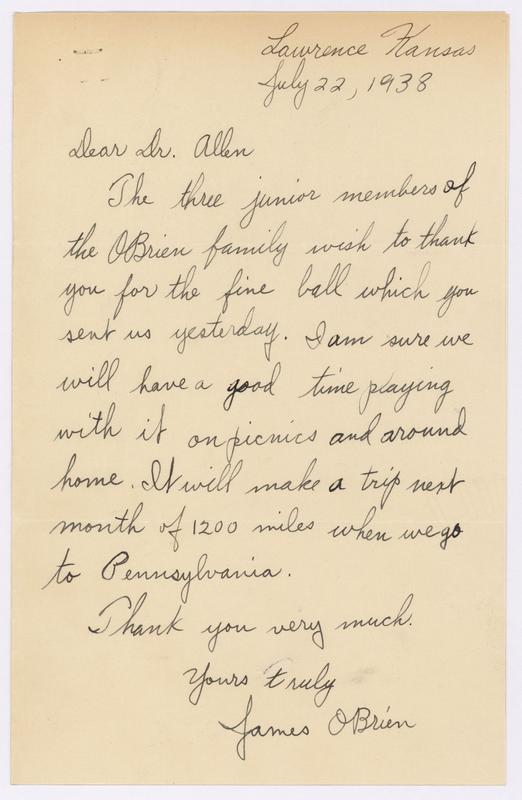 Lawrence Kansas
July 22, 1938
Dear Dr. Allen
The three junior members of
the OBrien family wish to thank
you for the fine ball which you
sent us yesterday. I am sure we
will have a good time playing
with it on picnics and around
home. It will make a trip next
month of 1200 miles when we go
to Pennsylvania.
Thank you very much.
Yours truly
James OBrien